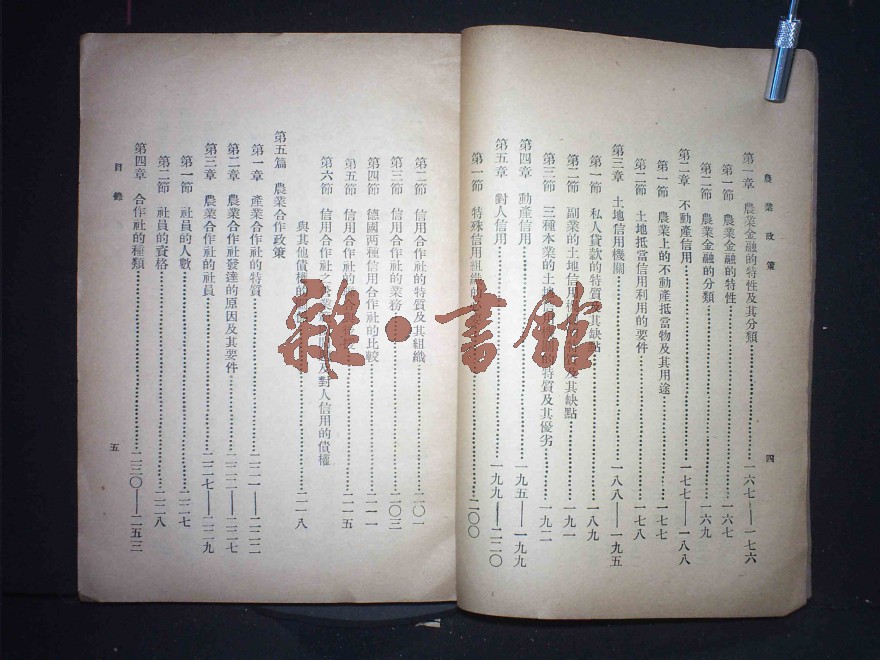 農業政策
第一章 農業金融的特性及其分類……一六七—一七六
第一節 農業金融的特性……一六七
第二節 農業金融的分類……一六九
第二章 不動產信用……一七七—一八八
第一節 農業上的不動產抵當物及其用途……一七七
第二節 土地抵當信用利用的要件……一七八
第三章 土地信用機關……一八八—一九五
第一節 私人貸款的特質及其缺點……一八九
第二節 副業的土地信用 及其缺點……一九一
第三節 三種本業的土地 的特質及其優劣……一九二
第四章 動產信用……一九五—一九九
第五章 對人信用……一九九—二二〇
第一節 特殊信用組織的……二〇〇
四
第二節 信用合作社的特質及其組織……二〇一
第三節 信用合作社的業務……二〇三
第四節 德國兩種信用合作社的比較……二一一
第五節 信用合作社的……二一五
第六節 信用合作社之營業 及對人信用的債權
與其他債權的……二一八
第五篇 農業合作政策
第一章 產業合作社的特質……二二一—二二二
第二章 農業合作社發達的原因及其要件……二二二—二二七
第三章 農業合作社的社員……二二七—二二九
第一節 社員的人數……二二七
第二節 社員的資格……二二八
第四章 合作社的種類……二三〇—二五三
目錄
五
雜·書館